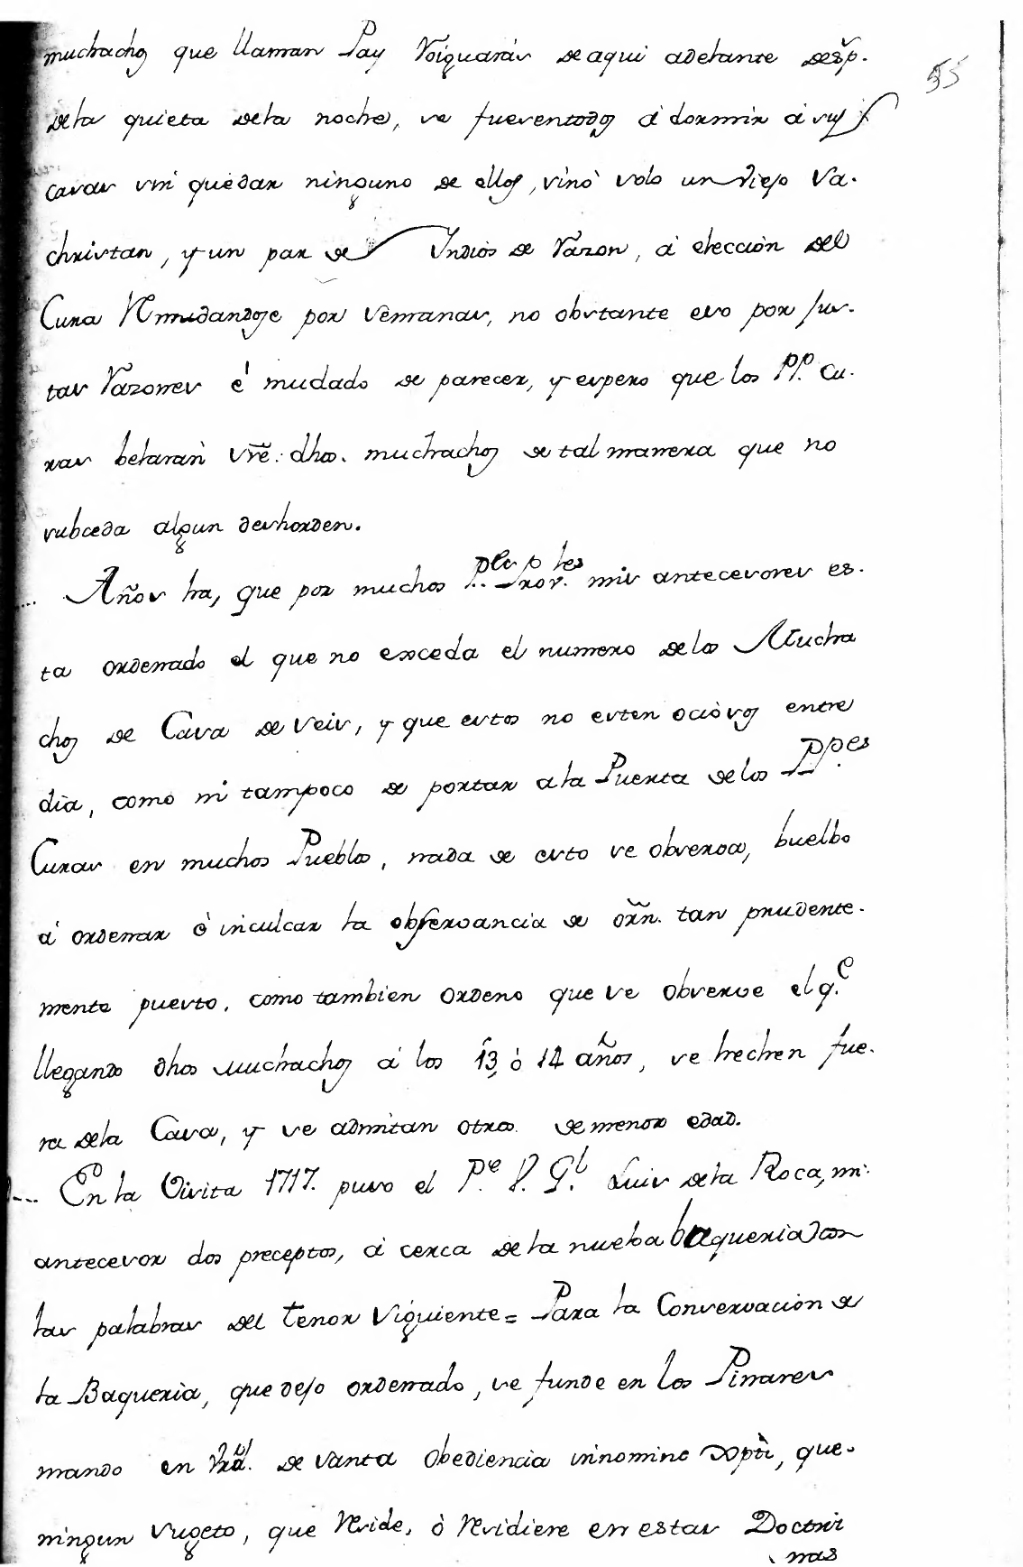 55
muchachos que llaman Pay Roiquarás de aqui adelante desp.
dela quieta dela noche, se fuesentodos á dormir á sus
casas sin quedar ninguno de ellos, sinó solo un viejo Sa-
christan, y un par de Indios de Razon, á elección del
Cura Remudandose por Semanas, no obstante eso por jus-
tas Razones é mudado de parecer, y espero que los PP. Cu-
ras belarán sre. dhos. muchachos de tal manera que no
subceda algun deshorden.
Años ha, que por muchos mis antecesores es-
ta ordenado el que no exceda el numero delos Mucha
chos de Casa de seis, y que estos no esten ociósos entre
dia, como ni tampoco de portar ala Puerta delos PPes
Curas en muchos Pueblos, nada de esto se obserua, buelbo
á ordenar è inculcar la obseruancia de orñ. tan prudente-
mente puesto. como tambien ordeno que se obserue el q.e
llegando dhos muchachos á los 13, ò 14 años, se hechen fue-
ra dela Casa, y se admitan otros de menor edad.
En la Visita 1717. puso el P.e P. G.l Luis dela Roca, mi
antecesor dos preceptos, á cerca dela nueba baqueria con
las palabras del tenor Siguiente= Para la Conseruación de
la Baqueria, que dejo ordenado, se funde en los Pinares
mando en Vrd. de Santa obediencia in nomine Xpti, que-
ningun Sugeto, que Reside, ò Residiere en estas Doctri
nas